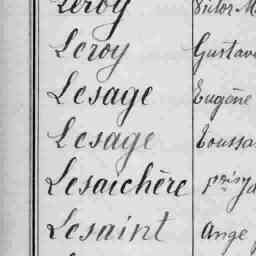 Leroy Victor M
Leroy Gustav
Lesage Eugène
Lesage Toussa
Lesaichère
Lesaint Ange